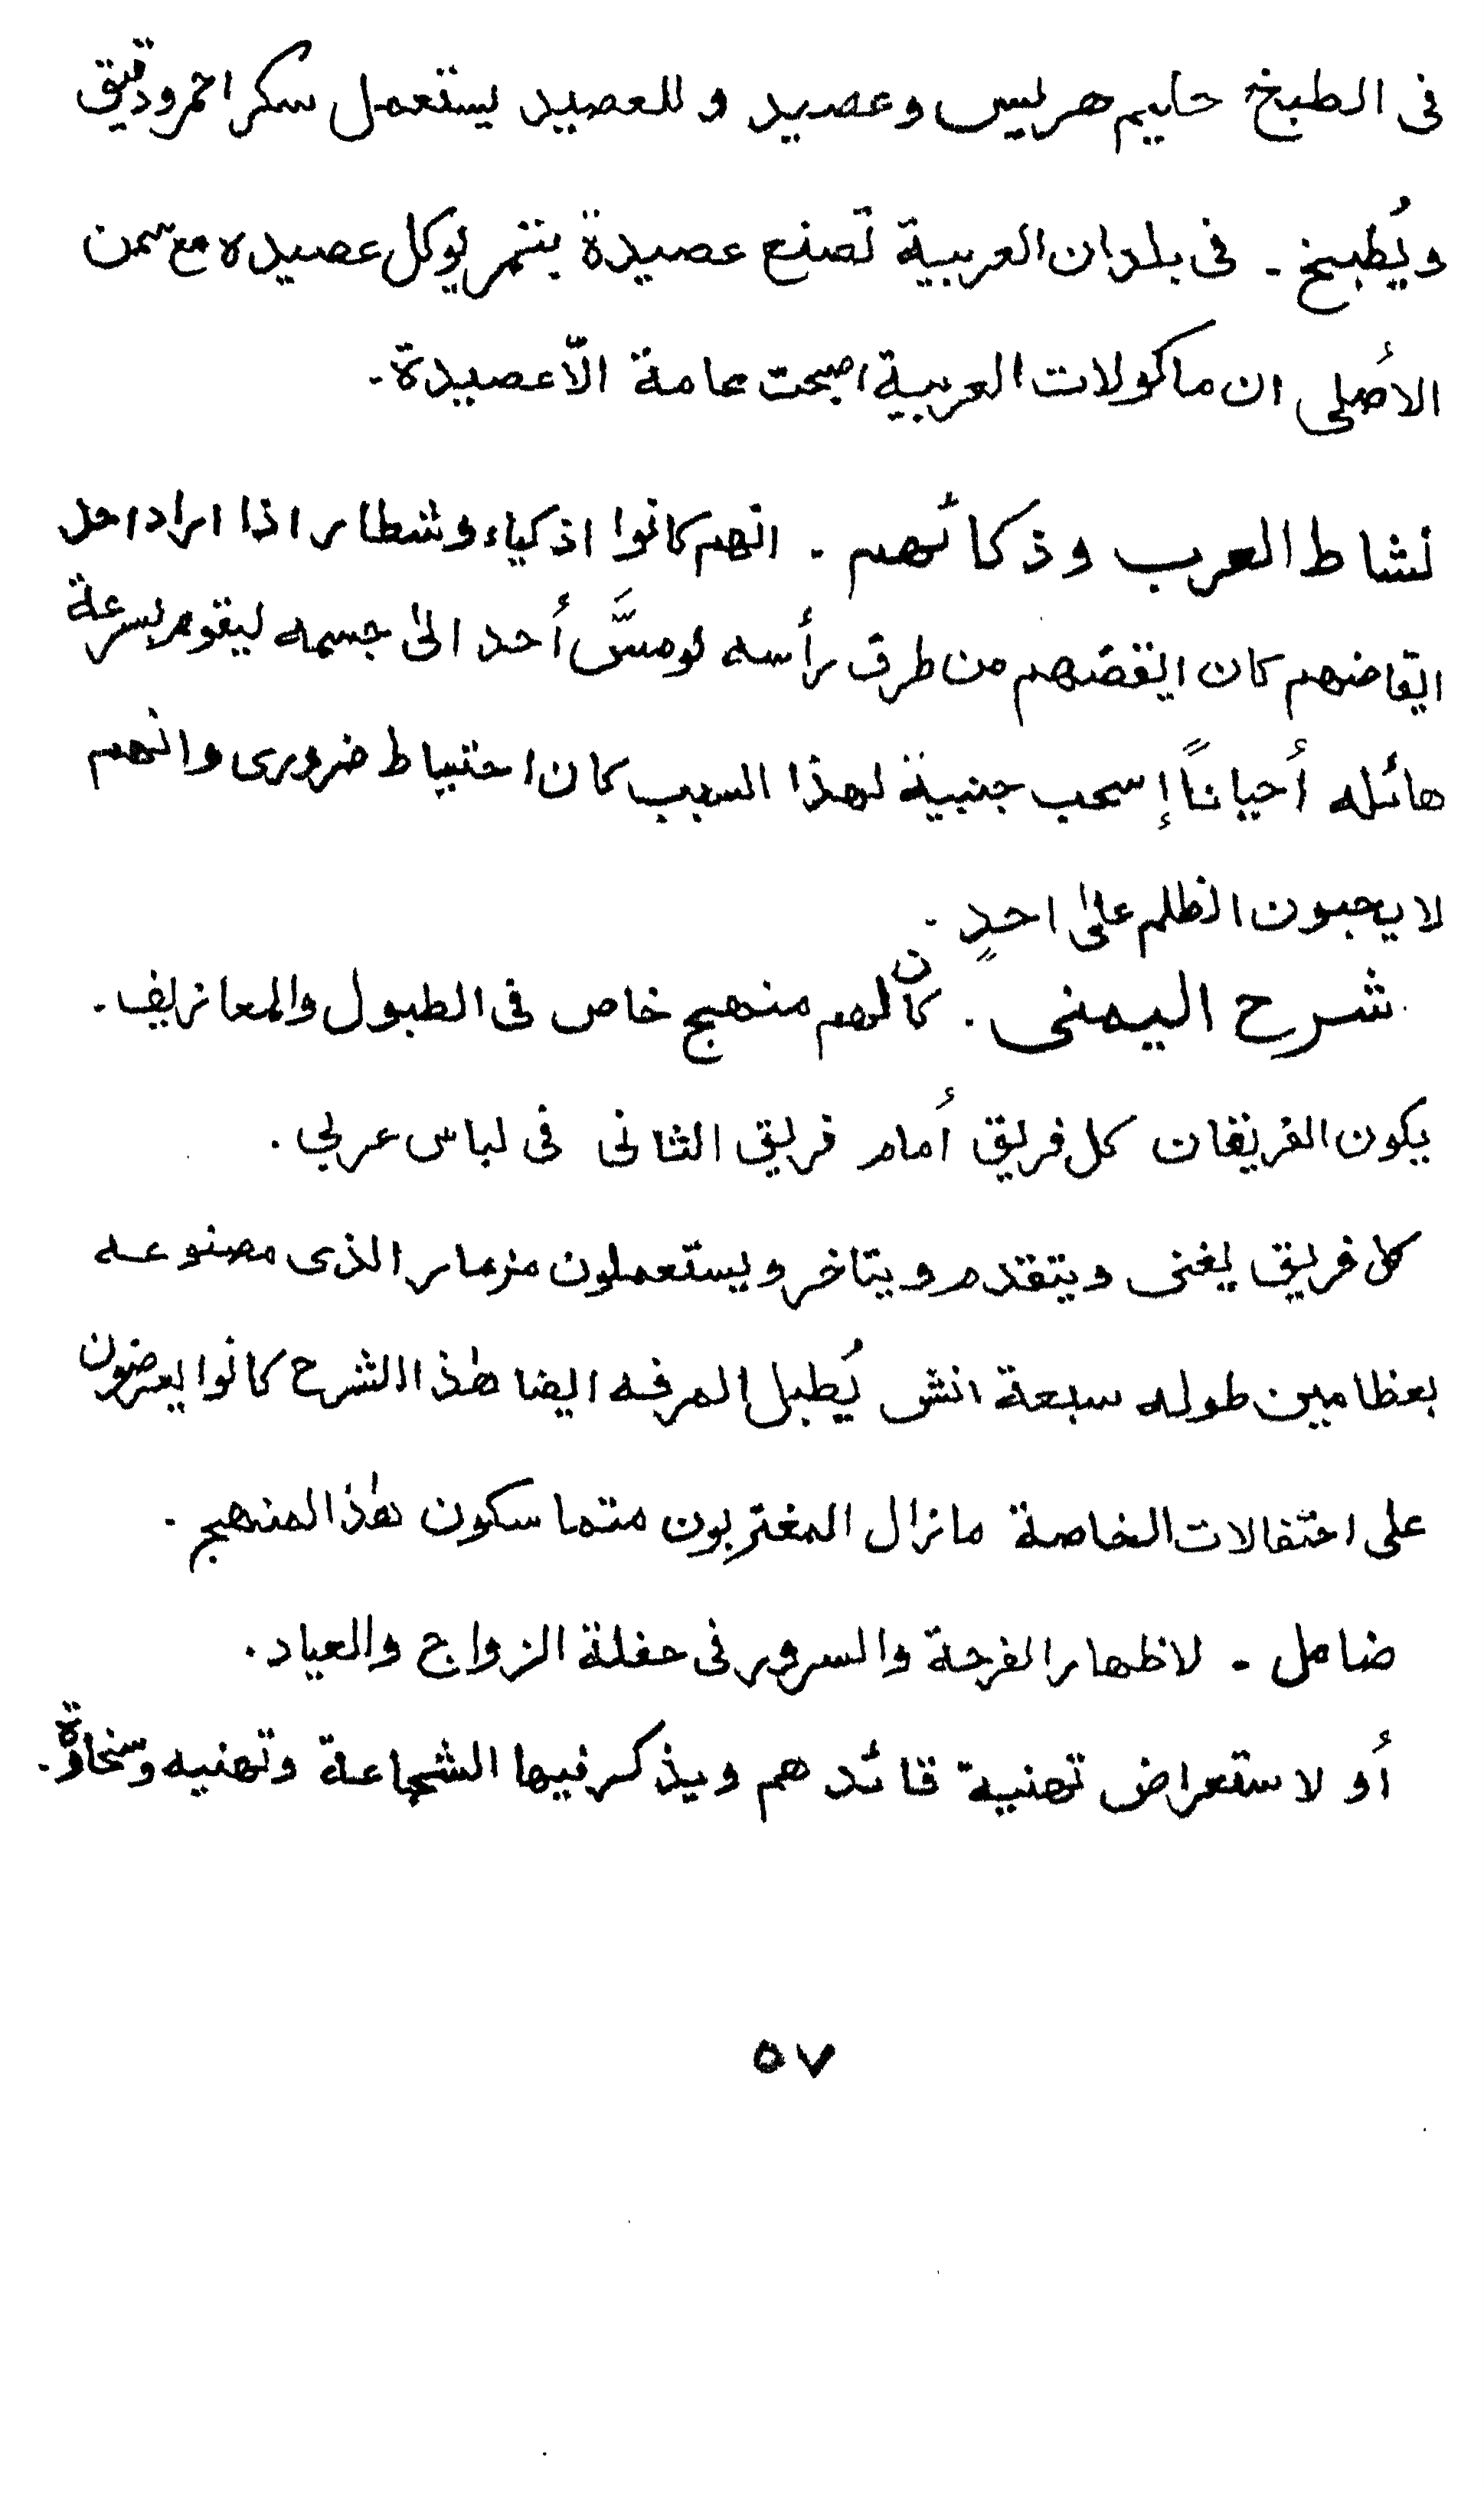 فى الطبخ حليم هريس وعصيد و للعصيد يستعمل سكر احمر ودقيق
ويُطبخ - فى بلدان العربية تصنع عصيدة بتمر يوكل عصيده مع سمن
الأصلى ان ماكولات العربية اصبحت عامة الّا عصيدة -
نشاط العرب وذكائهم . انهم كانوا اذكياء وشطار اذا اراد احد
ايقاضهم كان ايقضهم من طرف رأسه لو مسَّ أحد الىٰ جسمه ليقوم بسرعة
هائله أحياناً إسحب جنبية لهذا السبب كان احتياط ضرورى وانهم
لا يحبون الظلم علىٰ احدٍ .
شرح اليمنى . كان لهم منهج خاص فى الطبول والمعازيف .
يكون الفريقان كل فريق أمام فريق الثانى فى لباس عربي .
كل فريق يغنى ويتقدم ويتاخر ويستعملون مزمار الذى مصنوعه
بعظامين طوله سبعة انش يُطبل المرفه ايضا هٰذا الشرح كانوا يعرضون
على احتفالات الخاصة مازال المغتربون متماسكون هٰذا المنهج .
ضامل - لاظهار الفرحة والسرور فى حفلة الزواج والعياد .
أو لاستعراض تهنية قائدهم ويذكر فيها الشجاعة وتهنيه وسخاوة .
٥٧